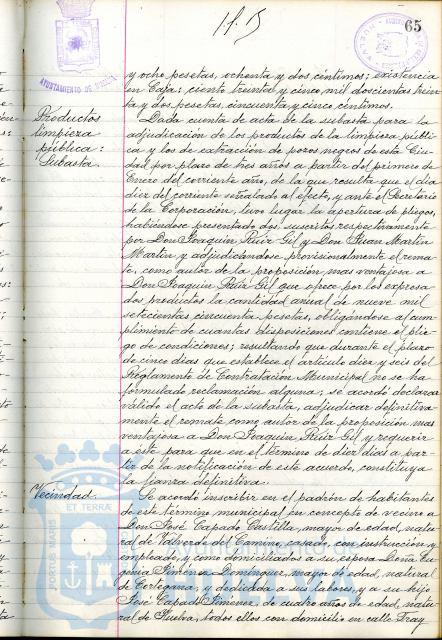 11.15
65
AYUNTAMIENTO DE HUELVA
y ocho pesetas, ochenta y dos céntimos; existencia
en Caja: ciento treinta y cinco mil doscientas trein
ta y dos pesetas, cincuenta y cinco céntimos.
Productos
limpieza
pública:
Subasta.
Dada cuenta de acta de la subasta para la
adjudicación de los productos de la limpieza públi
ca y los de extracción de pozos negros de esta Ciu
dad por plazo de tres años a partir del primero de
Enero del corriente año, de la que resulta que el día
diez del corriente señalado al efecto, y ante el Secretario
de la Corporación, tuvo lugar la apertura de pliegos,
habiéndose presentado dos, suscritos respectivamente
por Don Joaquín Ruiz Gil y Don Juan Martín
Martín y adjudicándose provisionalmente el rema
te, como autor de la proposición mas ventajosa a
Don Joaquín Ruiz Gil que ofrece por los expresa
dos productos la cantidad anual de nueve mil
setecientas cincuenta pesetas, obligándose al cum
plimiento de cuantas disposiciones contiene el plie
go de condiciones; resultando que durante el plazo
de cinco días que establece el artículo diez y seis del
Reglamento de Contratación Municipal no se ha
formulado reclamación alguna; se acordó declarar
válido el acto de la subasta, adjudicar definitiva
mente el remate como autor de la proposición mas
ventajosa a Don Joaquín Ruiz Gil y requerir
a este para que en el término de diez días a par
tir de la notificación de este acuerdo, constituya
la fianza definitiva.
Vecindad.
Se acordó inscribir en el padrón de habitantes
de este término municipal en concepto de vecino a
Don José Capado Castilla, mayor de edad, natu
ral de Valverde del Camino, casado, con instrucción y
empleado, y como domiciliados a su esposa Doña Eu
genia Jiménez Domínguez, mayor de edad, natural
de Cortegana, y dedicada a sus labores, y a su hijo
José Capado Jiménez, de cuatro años de edad, natu
ral de Huelva, todos ellos con domicilio en calle Fray
PORTUS MARIS
ET TERRAE